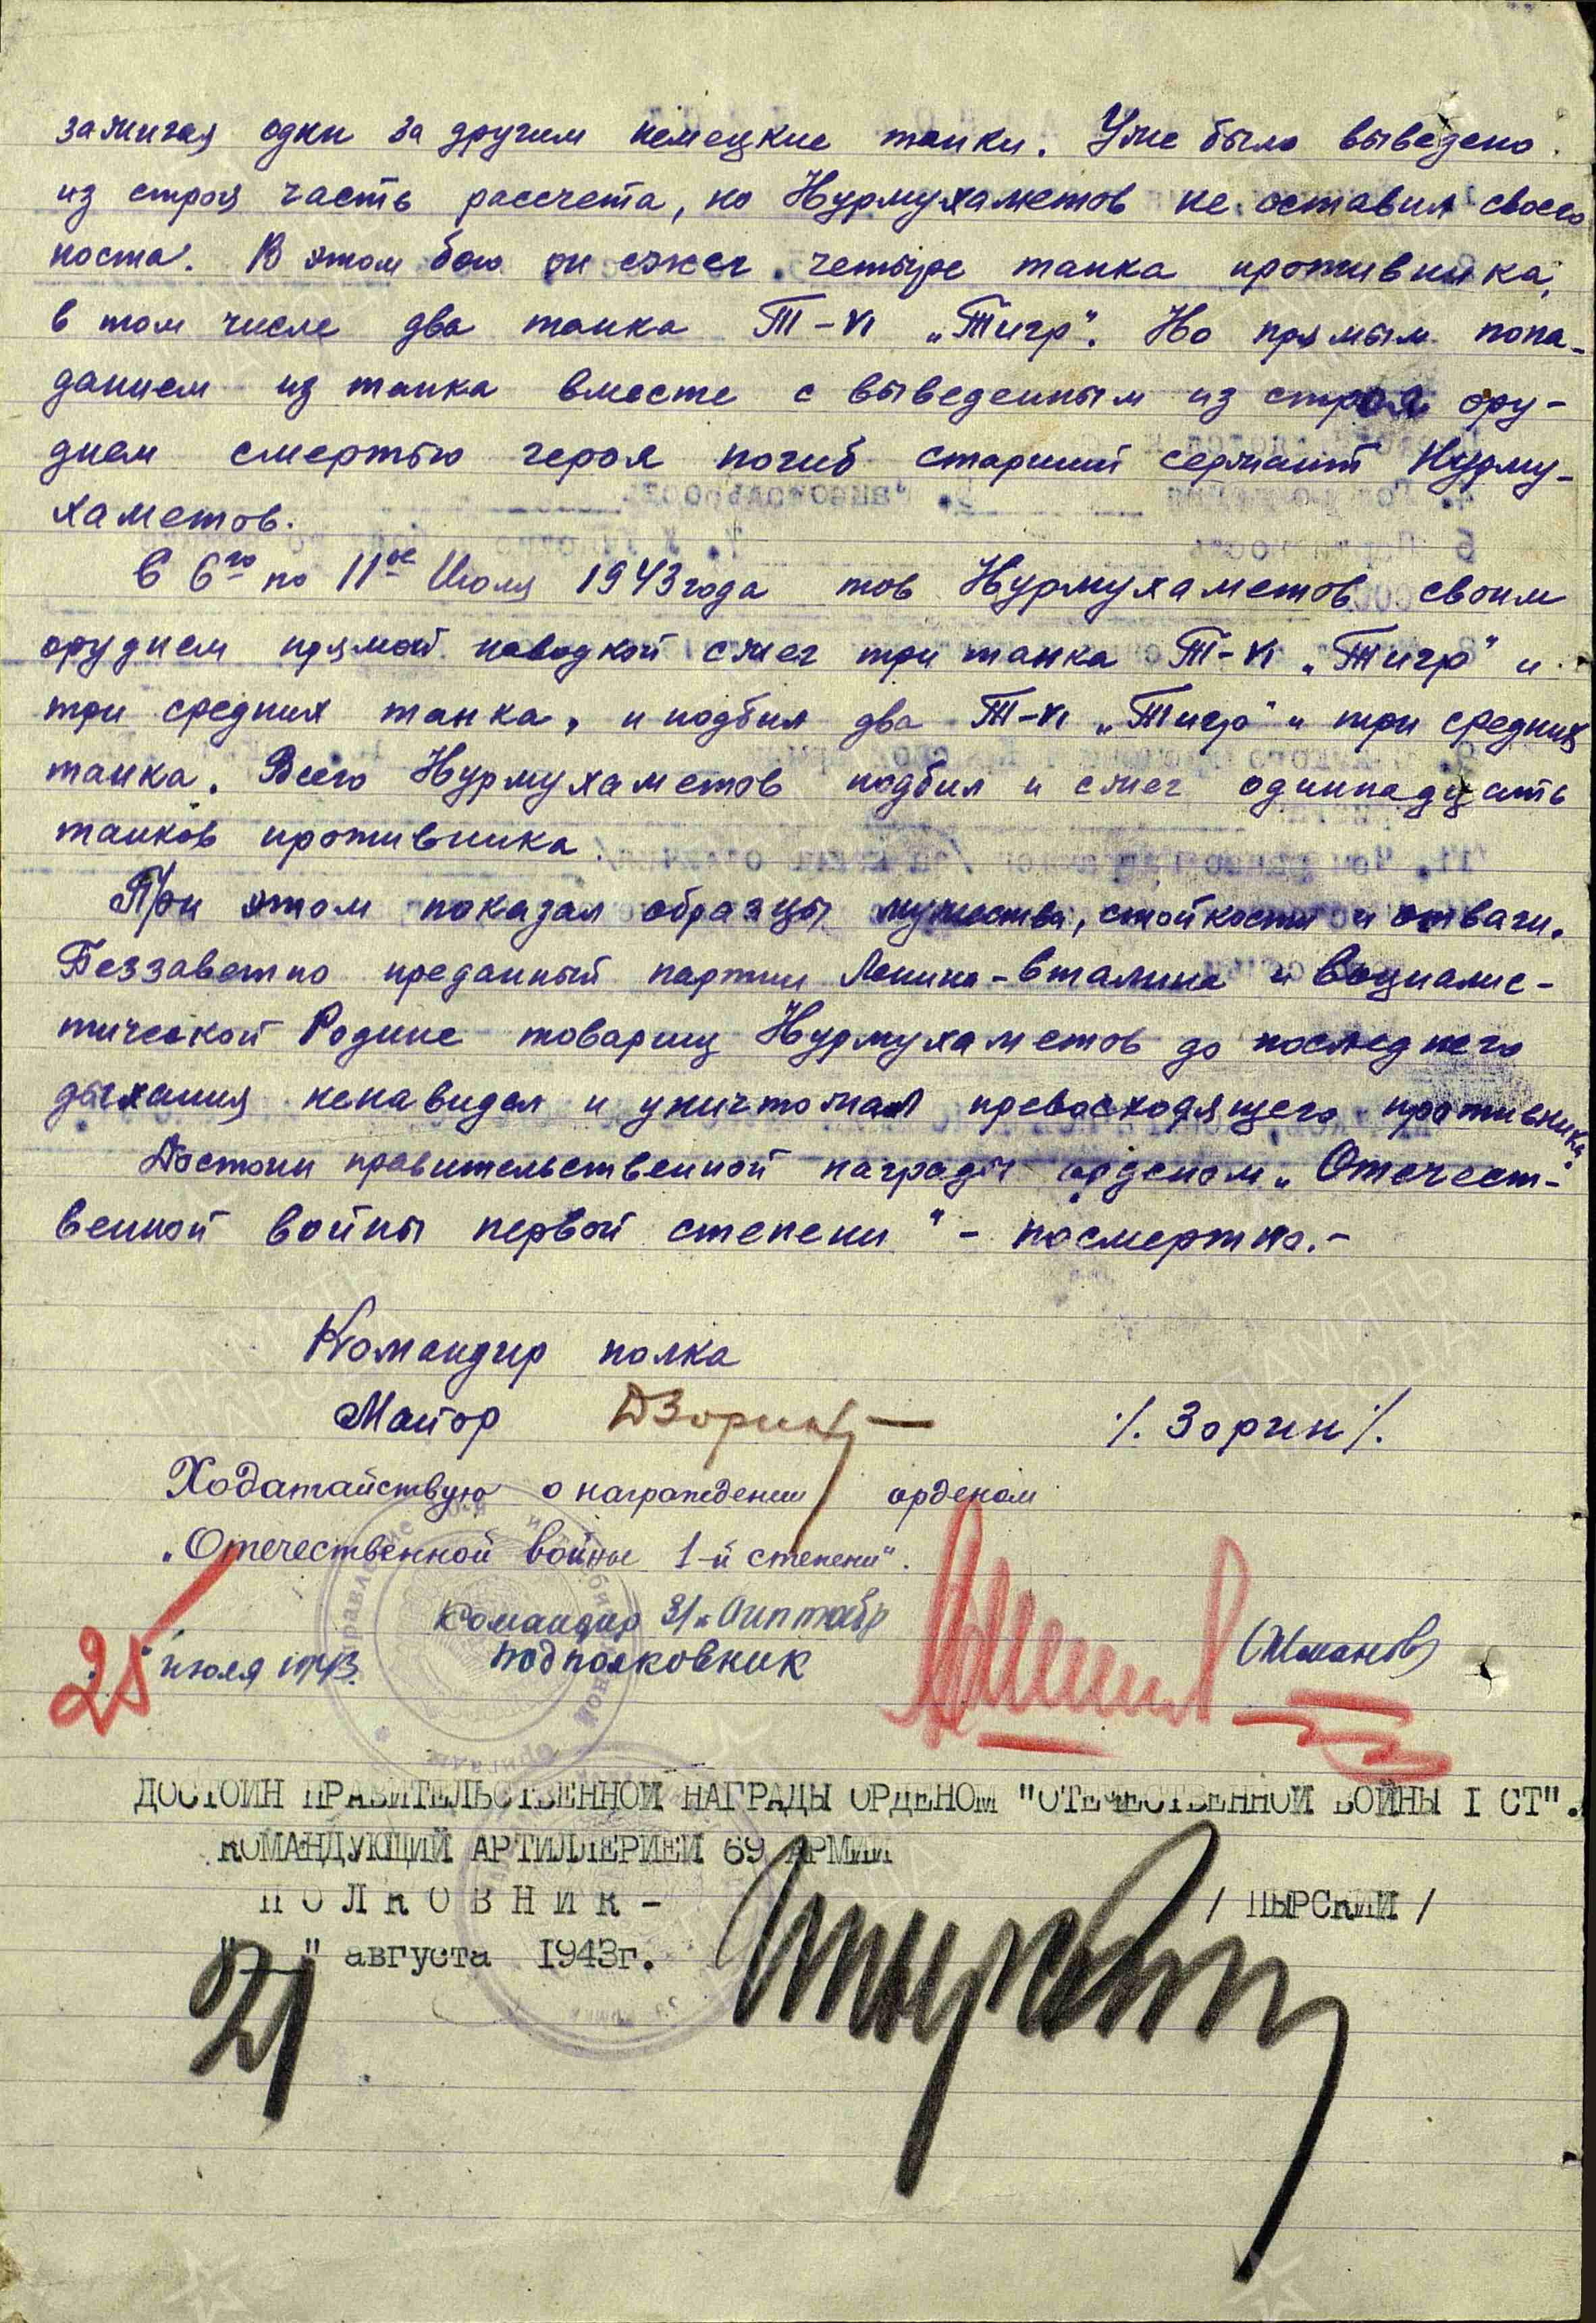 зажигая одни за другим немецкие танки. Уже было выведено
из строя часть рассчета, но Нурмухаметов не оставил своего
поста. В этом бою он сжег четыре танка противника,
в том числе два танка Т-VI „Тигр". Но прямым попа-
данием из танка вместе с выведенным из строя ору-
дием смертью героя погиб старший сержант Нурму-
хаметов.
С 6го по 11ое Июля 1943 года тов Нурмухаметов своим
орудием прямой наводкой сжег три танка Т-VI „Тигр" и
три средних танка, и подбил два Т-VI „Тигр" и три средних
танка. Всего Нурмухаметов подбил и сжег одиннадцать
танков противника
При этом показал образцы мужества, стойкости и отваги.
Беззаветно преданный партии Ленина-Сталина и Социалис-
тической Родине товарищ Нурмухаметов до последнего
дыхания ненавидел и уничтожал превосходящего противника.
Достоин правительственной награды орденом „Отечест-
венной войны первой степени" - посмертно.-
Командир полка
Майор ДЗорин /. Зорин /.
Ходатайствую о награждении орденом
„Отечественной войны 1-й степени".
Командир 31 Оиптабр
подполковник
25 июля 1943.
ДОСТОИН ПРАВИТЕЛЬСТВЕННОЙ НАГРАДЫ ОРДЕНОМ "ОТЕЧЕСТВЕННОЙ ВОЙНЫ I СТ".
КОМАНДУЮЩИЙ АРТИЛЛЕРИЕЙ 69 АРМИИ
ПОЛКОВНИК - / ПЫРСКИЙ /
"21" августа 1943г.
ПАМЯТЬ
НАРОДА